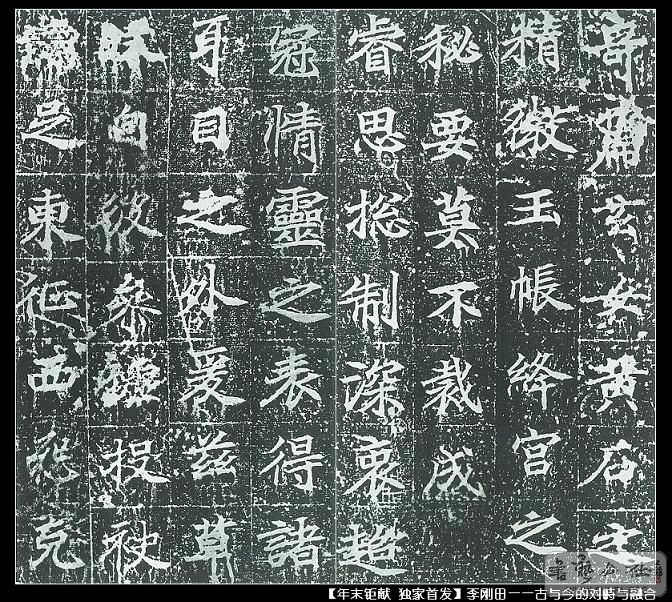 奇玄女黃石之
精微玉帳絳宮之
秘要莫不裁成
睿思揔制深衷超
冠情靈之表得諸
耳目之外爰茲草
昧向參墟投袂
足東征西怨克
【年末钜献 独家首发】李刚田——古与今的对畤与融合